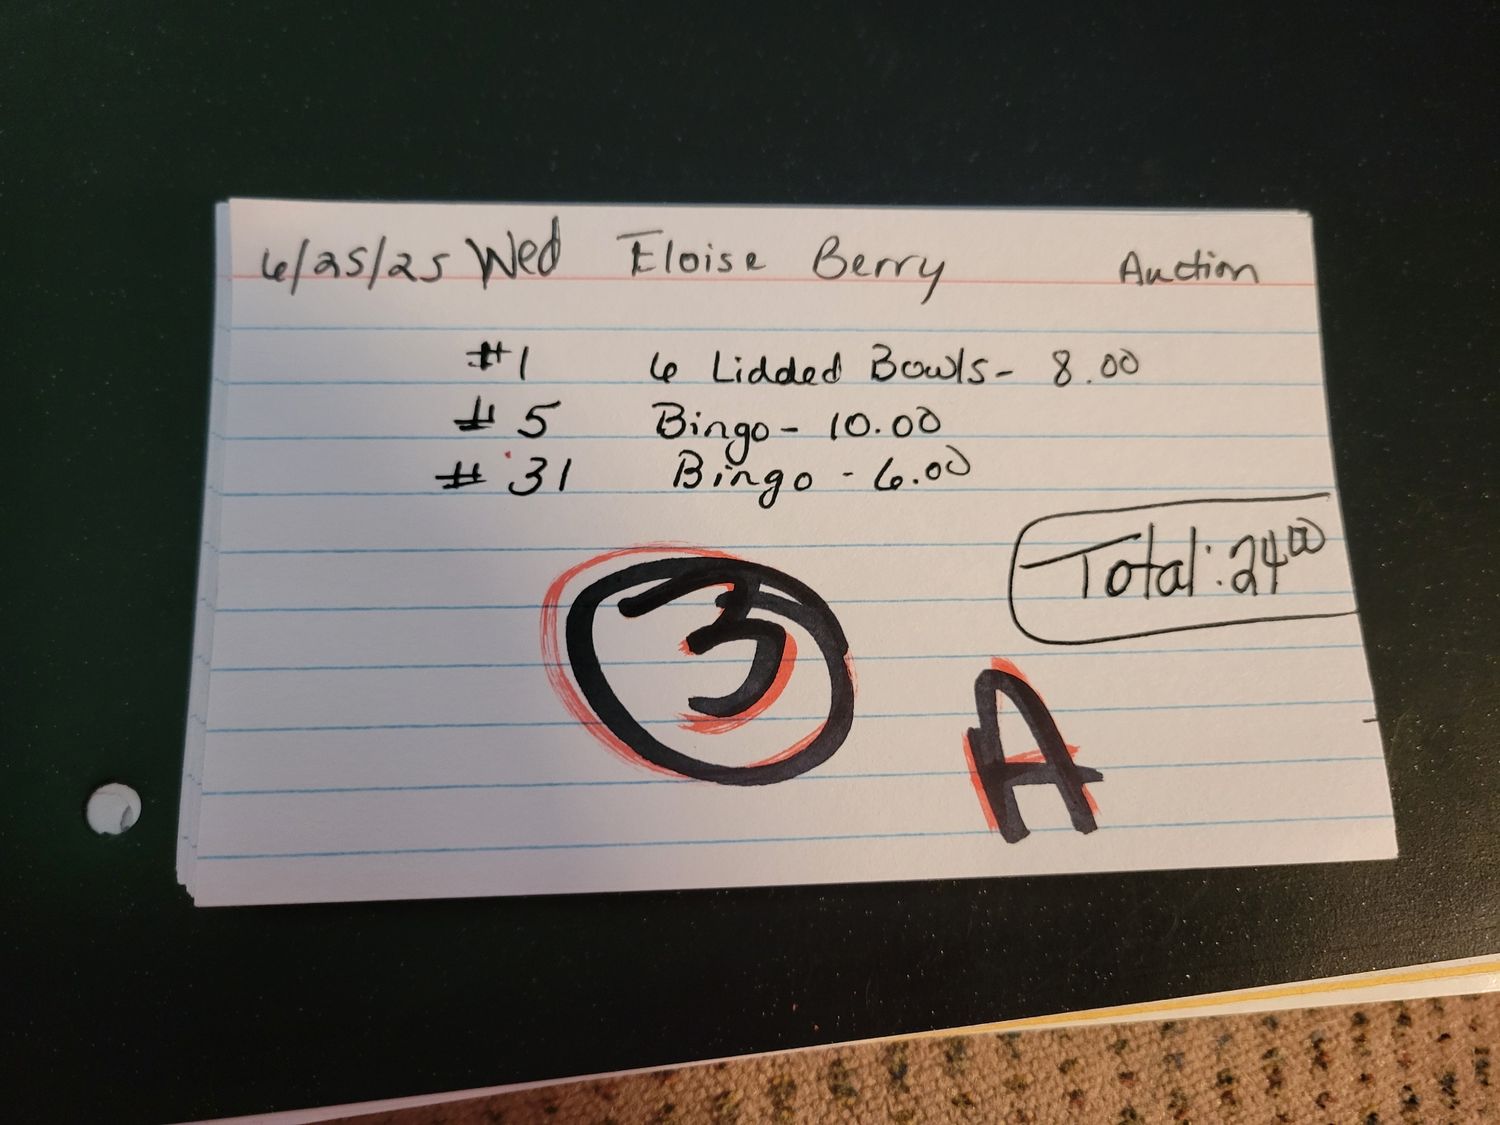 6/25/25 Wed Eloise Berry Auction
#1 6 Lidded Bowls- 8.00
#5 Bingo- 10.00
#31 Bingo - 6.00
Total: 24 00
3
A